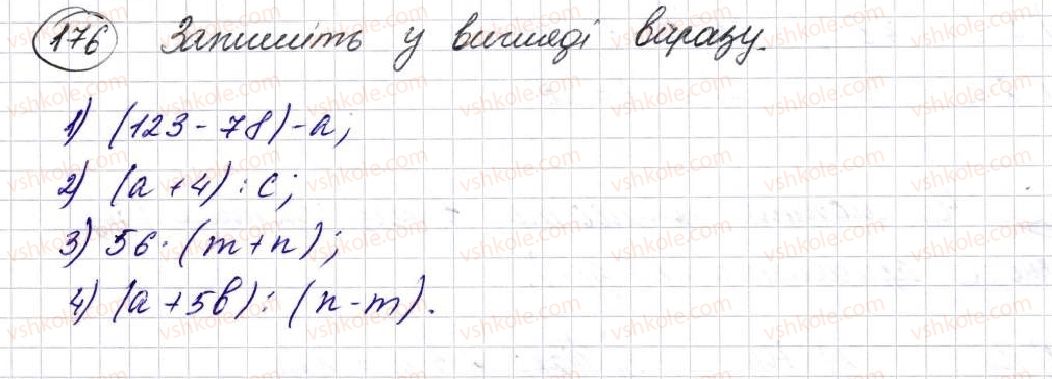 176 Запишіть у вигляді виразу.
1) (123 - 78) - a;
2) (a + 4) : c;
3) 56 · (m + n);
4) (a + 5b) : (n - m).